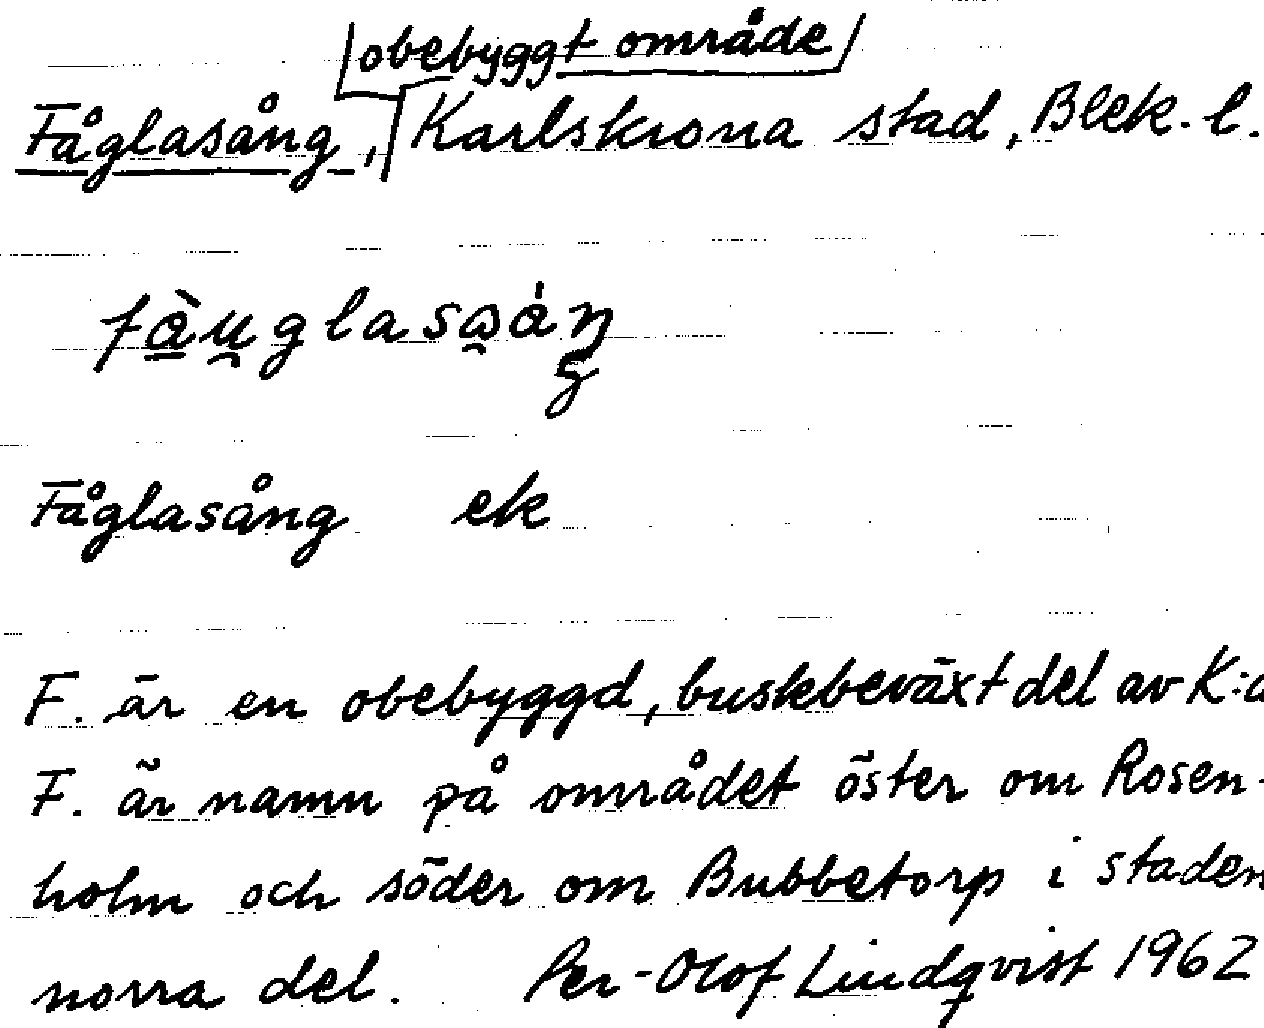 obebyggt område
Fåglasång, Karlskrona stad, Blek. l.
Fåglasång ek
F. är en obebyggd, buskbeväxt del av K:a
F. är namn på området öster om Rosen-
holm och söder om Bubbetorp i staden
norra del. Per-Olof Lindqvist 1962